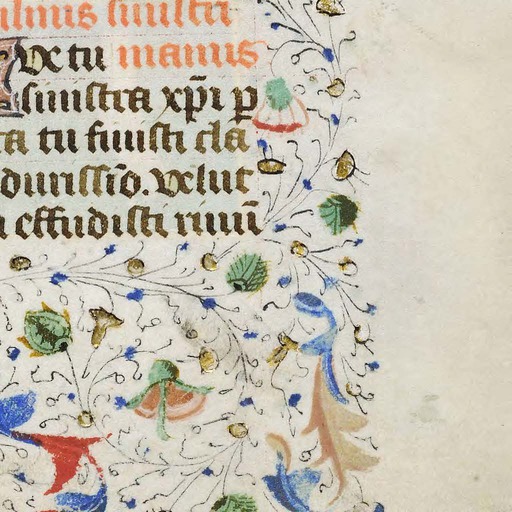 manus sinistri
Ve tu manus
sinistra xp̃i p
ta tu fuisti cla
durissĩo. velut
effudisti riuũ